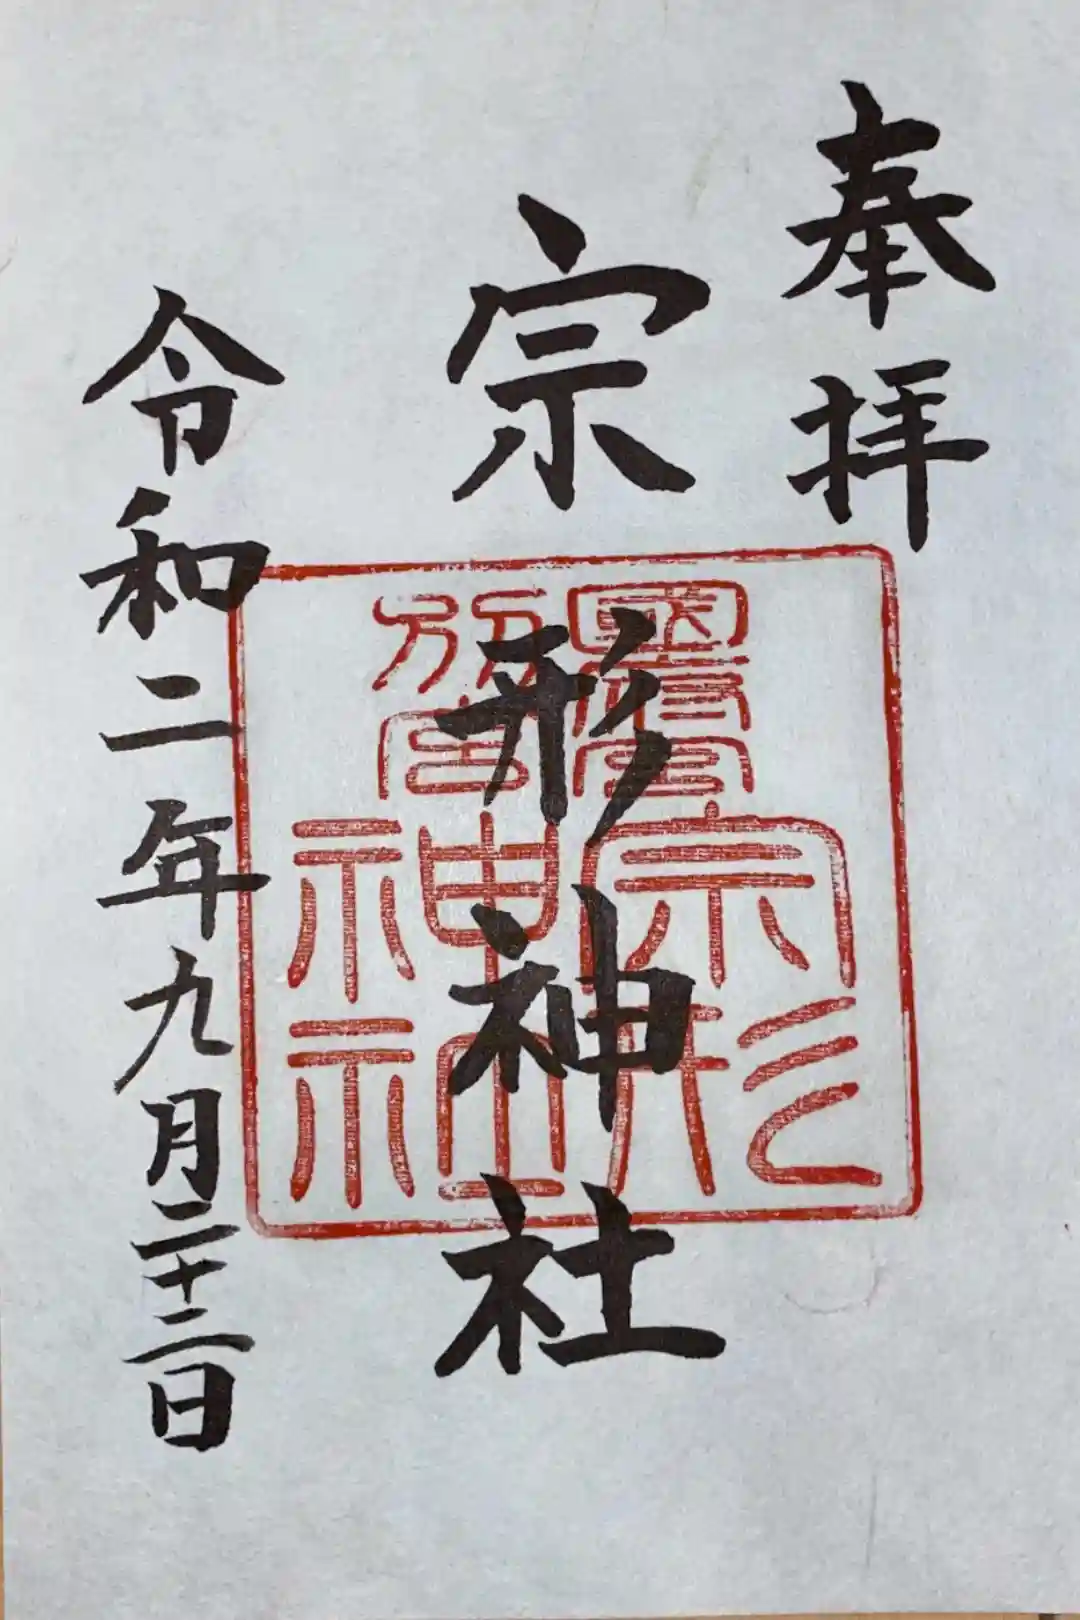 奉拝
宗形神社
令和二年九月二十二日
宗形
神社